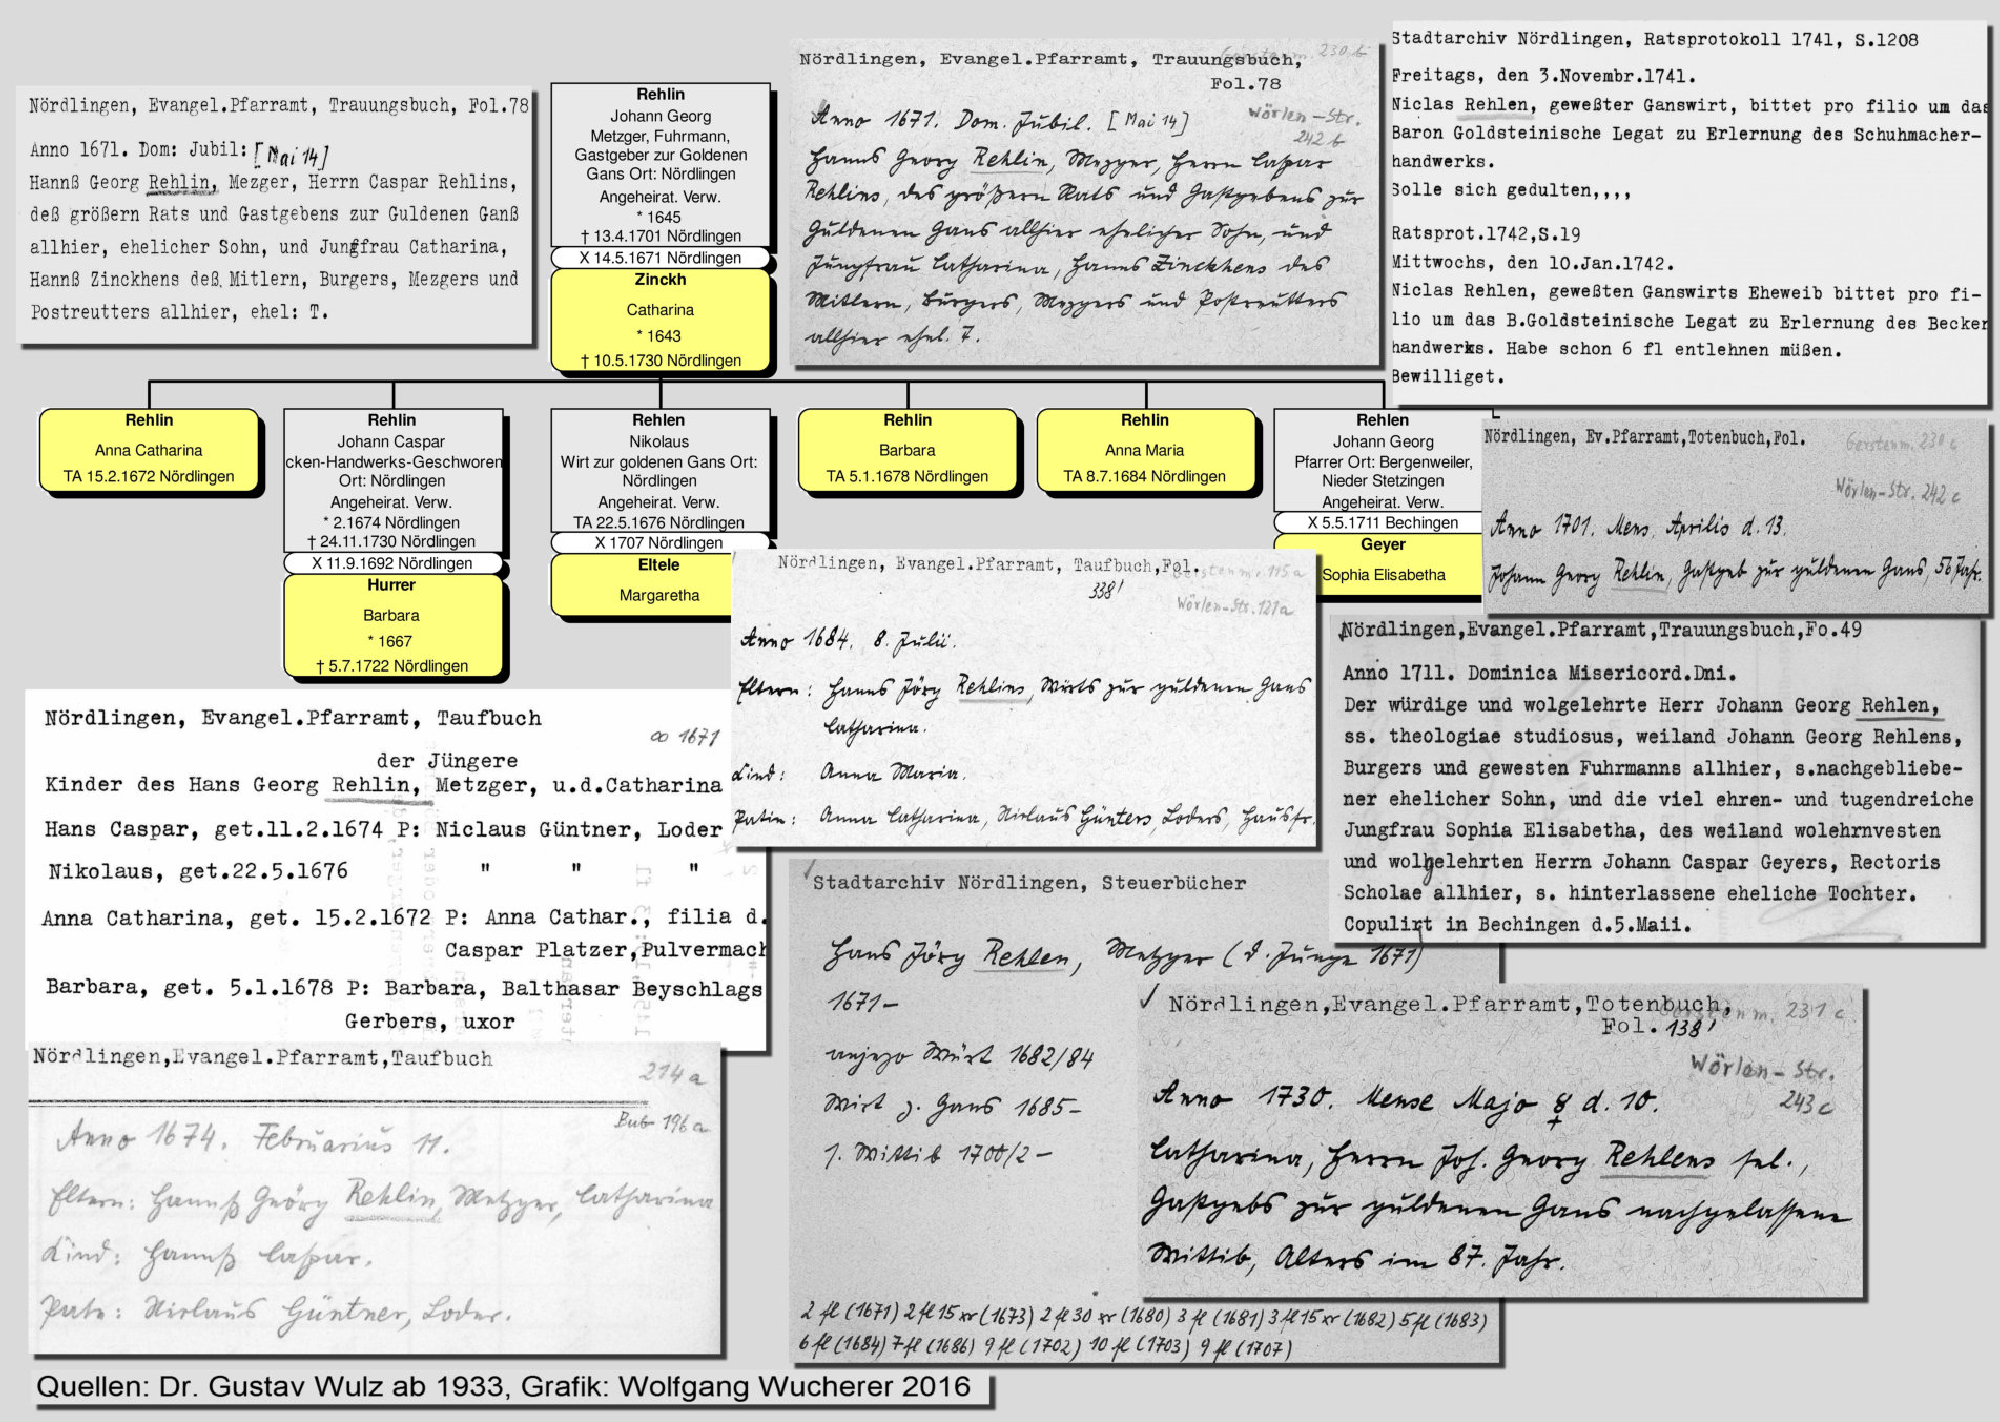 Nördlingen, Evangel.Pfarramt, Trauungsbuch, Fol.78
Anno 1671. Dom: Jubil: [Mai 14]
Hannß Georg Rehlin, Mezger, Herrn Caspar Rehlins,
deß größern Rats und Gastgebens zur Guldenen Ganß
allhier, ehelicher Sohn, und Jungfrau Catharina,
Hannß Zinckhens deß Mitlern, Burgers, Mezgers und
Postreutters allhier, ehel: T.
Rehlin
Johann Georg
Metzger, Fuhrmann,
Gastgeber zur Goldenen
Gans Ort: Nördlingen
Angeheirat. Verw.
* 1645
† 13.4.1701 Nördlingen
X 14.5.1671 Nördlingen
Zinckh
Catharina
* 1643
† 10.5.1730 Nördlingen
Nördlingen, Evangel.Pfarramt, Trauungsbuch,
Fol.78
Gerstenm. 230 b
Wörlen-Str.
242 b
Anno 1671. Dom. Jubil. [Mai 14]
Hanns Georg Rehlin, Mezger, Herrn Caspar
Rehlins, des größern Rats und Gastgebens zur
Guldenen Gans allhier ehelicher Sohn, und
Jungfrau Catharina, Hanns Zinckhens des
Mitlern, Burgers, Mezgers und Postreutters
allhier ehel. T.
Stadtarchiv Nördlingen, Ratsprotokoll 1741, S.1208
Freitags, den 3.Novembr.1741.
Niclas Rehlen, geweßter Ganswirt, bittet pro filio um das
Baron Goldsteinische Legat zu Erlernung des Schuhmacher-
handwerks.
Solle sich gedulten,,,,
Ratsprot.1742,S.19
Mittwochs, den 10.Jan.1742.
Niclas Rehlen, geweßten Ganswirts Eheweib bittet pro fi-
lio um das B.Goldsteinische Legat zu Erlernung des Becker
handwerks. Habe schon 6 fl entlehnen müßen.
Bewilliget.
Rehlin
Anna Catharina
TA 15.2.1672 Nördlingen
Rehlin
Johann Caspar
cken-Handwerks-Geschworen
Ort: Nördlingen
Angeheirat. Verw.
* 2.1674 Nördlingen
† 24.11.1730 Nördlingen
X 11.9.1692 Nördlingen
Hurrer
Barbara
* 1667
† 5.7.1722 Nördlingen
Rehlen
Nikolaus
Wirt zur goldenen Gans Ort:
Nördlingen
Angeheirat. Verw.
TA 22.5.1676 Nördlingen
X 1707 Nördlingen
Eltele
Margaretha
Rehlin
Barbara
TA 5.1.1678 Nördlingen
Rehlin
Anna Maria
TA 8.7.1684 Nördlingen
Rehlen
Johann Georg
Pfarrer Ort: Bergenweiler,
Nieder Stetzingen
Angeheirat. Verw.
X 5.5.1711 Bechingen
Geyer
Sophia Elisabetha
Nördlingen, Ev.Pfarramt,Totenbuch,Fol.
Gerstenm. 230 c
Wörlen-Str. 242 c
Anno 1701. Mens. Aprilis d. 13.
Johann Georg Rehlin, Gastgeb zur guldenen Gans, 56 Jahr.
Nördlingen, Evangel.Pfarramt, Taufbuch,Fol.
338'
Gerstenm. 115 a
Wörlen-Str. 127 a
Anno 1684. 8. Julii.
Eltern: Hanns Jörg Rehlins, Wirts zur guldenen Gans
Catharina.
Kind: Anna Maria.
Patin: Anna Catharina, Niclaus Günters, Loders, Hausfr.
Nördlingen,Evangel.Pfarramt,Trauungsbuch,Fo.49
Anno 1711. Dominica Misericord.Dni.
Der würdige und wolgelehrte Herr Johann Georg Rehlen,
ss. theologiae studiosus, weiland Johann Georg Rehlens,
Burgers und gewesten Fuhrmanns allhier, s.nachgebliebe-
ner ehelicher Sohn, und die viel ehren- und tugendreiche
Jungfrau Sophia Elisabetha, des weiland wolehrnvesten
und wolgelehrten Herrn Johann Caspar Geyers, Rectoris
Scholae allhier, s. hinterlassene eheliche Tochter.
Copulirt in Bechingen d.5.Maii.
Nördlingen, Evangel.Pfarramt, Taufbuch
∞ 1671
der Jüngere
Kinder des Hans Georg Rehlin, Metzger, u.d.Catharina
Hans Caspar, get.11.2.1674 P: Niclaus Güntner, Loder
Nikolaus, get.22.5.1676 " " "
Anna Catharina, get. 15.2.1672 P: Anna Cathar., filia d.
Caspar Platzer,Pulvermach
Barbara, get. 5.1.1678 P: Barbara, Balthasar Beyschlags
Gerbers, uxor
Stadtarchiv Nördlingen, Steuerbücher
Hans Jörg Rehlen, Metzger (d. Junge 1671)
1671-
anjezo Würt 1682/84
Wirt z. Gans 1685-
s. Wittib 1700/2-
2 fl (1671) 2 fl 15 xr (1673) 2 fl 30 xr (1680) 3 fl (1681) 3 fl 15 xr (1682) 5 fl (1683)
6 fl (1684) 7 fl (1686) 9 fl (1702) 10 fl (1703) 9 fl (1707)
Nördlingen,Evangel.Pfarramt,Totenbuch,
Fol. 138'
Gerstenm. 231 c.
Wörlen-Str.
243 c
Anno 1730. Mense Majo ☿ d. 10.
Catharina, Herrn Joh. Georg Rehlens sel.,
Gastgebs zur guldenen Gans nachgelassene
Wittib, Alters im 87. Jahr.
Nördlingen,Evangel.Pfarramt,Taufbuch
214 a
Bub 196 a
Anno 1674. Februarius 11.
Eltern: Hannß Geörg Rehlin, Metzger, Catharina
Kind: Hannß Caspar.
Pate: Niclaus Güntner, Loder.
Quellen: Dr. Gustav Wulz ab 1933, Grafik: Wolfgang Wucherer 2016